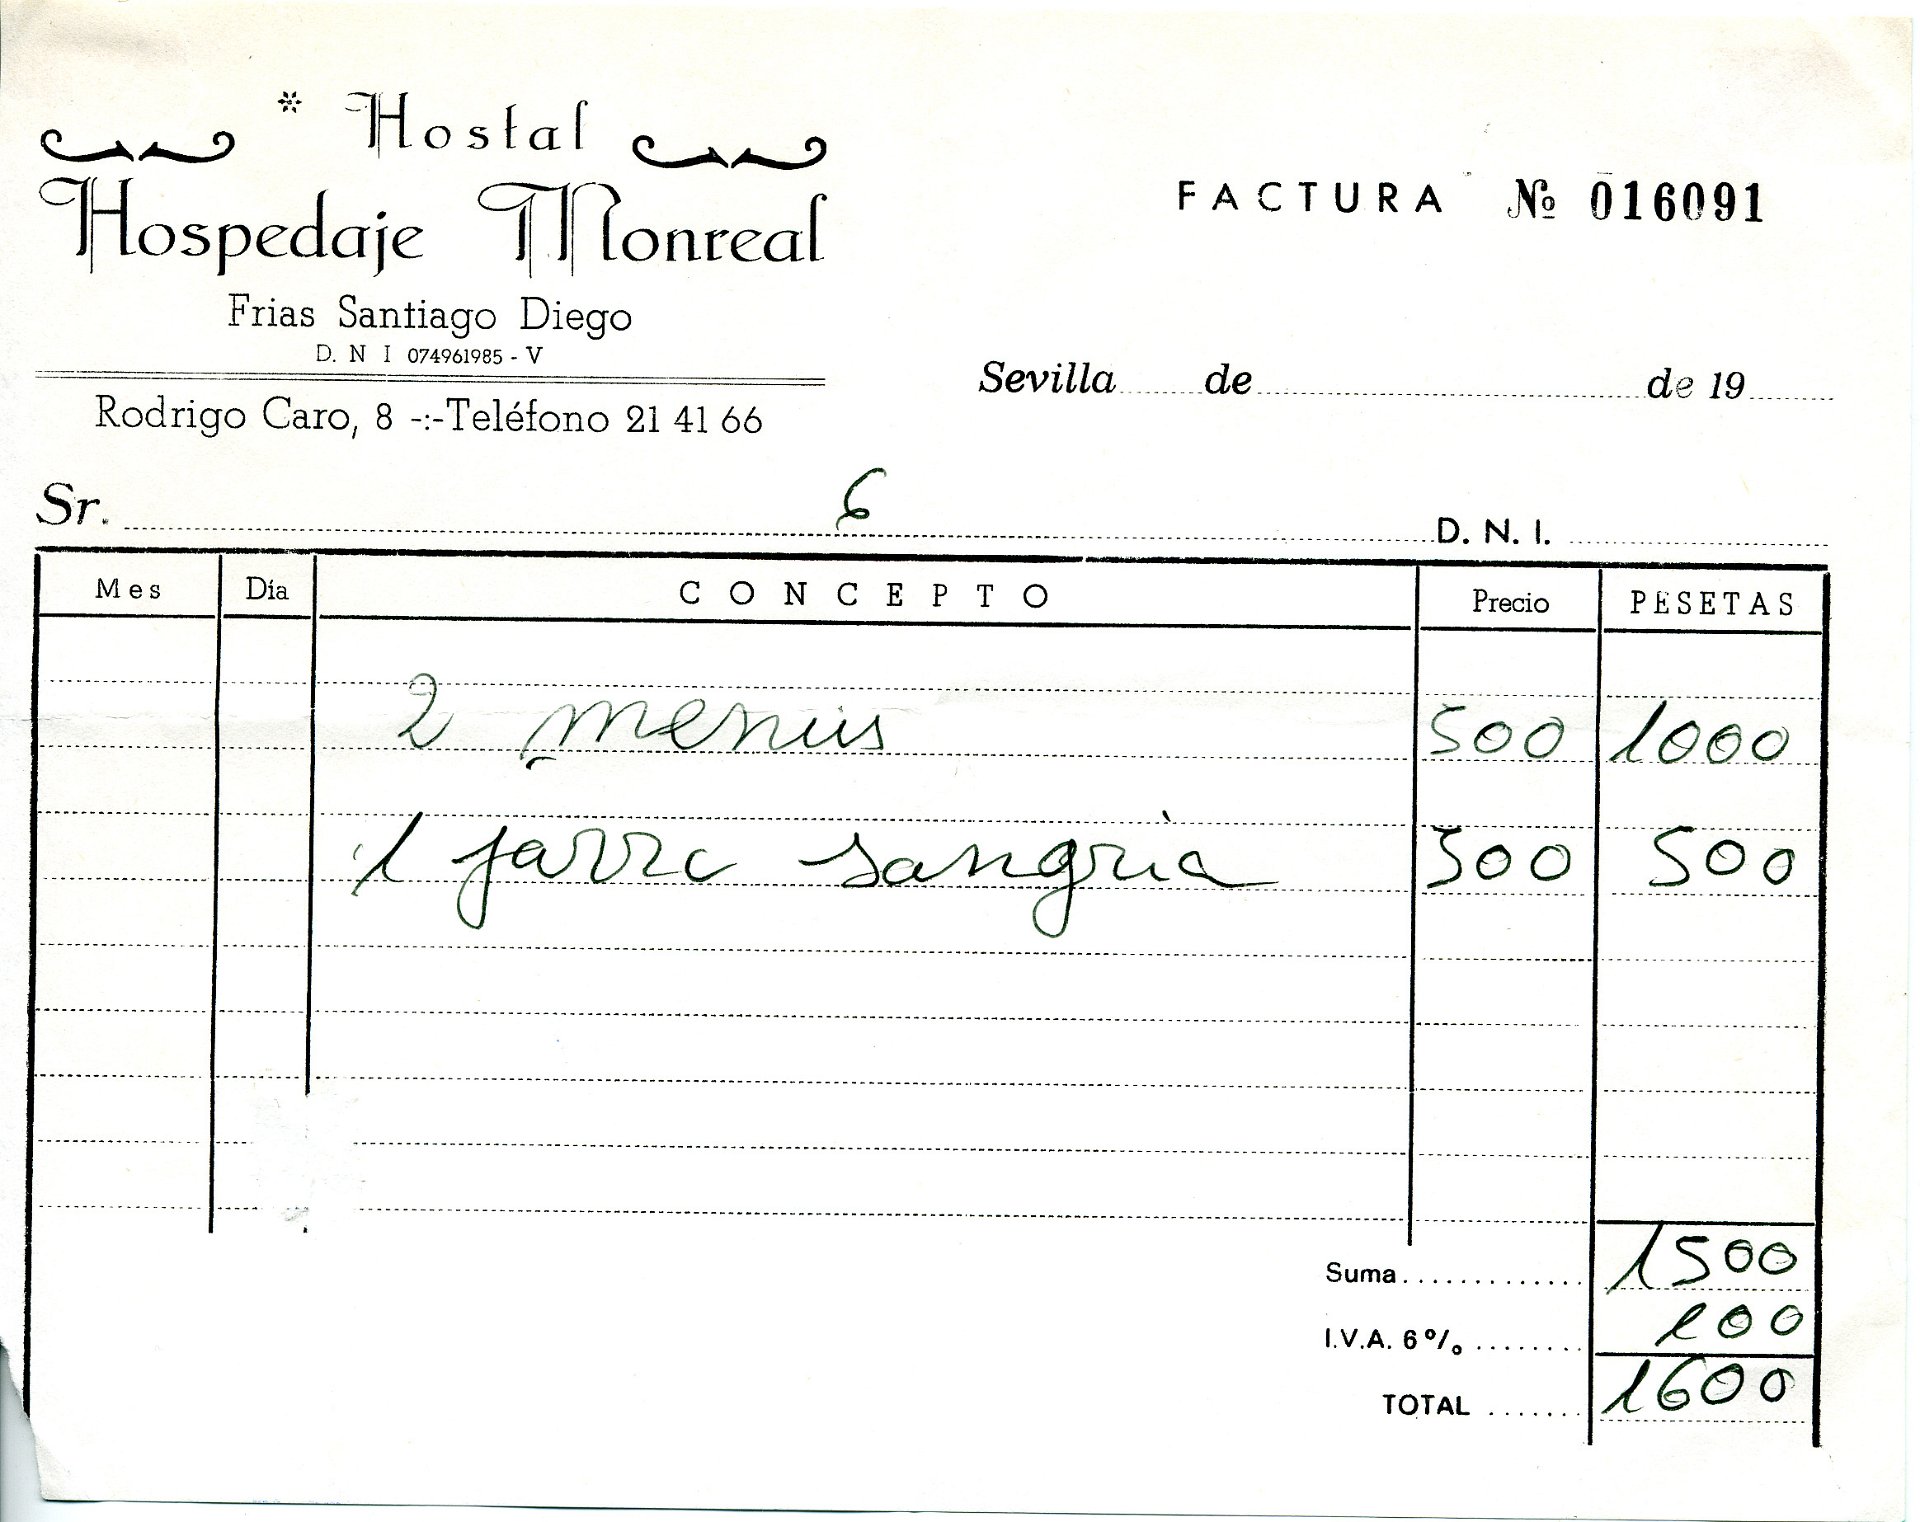 * Hostal
Hospedaje Monreal
Frias Santiago Diego
D. N I 074961985 - V
Rodrigo Caro, 8 -:- Teléfono 21 41 66
FACTURA Nº 016091
Sevilla ...... de .................... de 19......
Sr. 6 D. N. I.
Mes Día CONCEPTO Precio PESETAS
2 menus 500 1000
1 jarra sangria 500 500
Suma............. 1500
I.V.A. 6% ........ 100
TOTAL ....... 1600